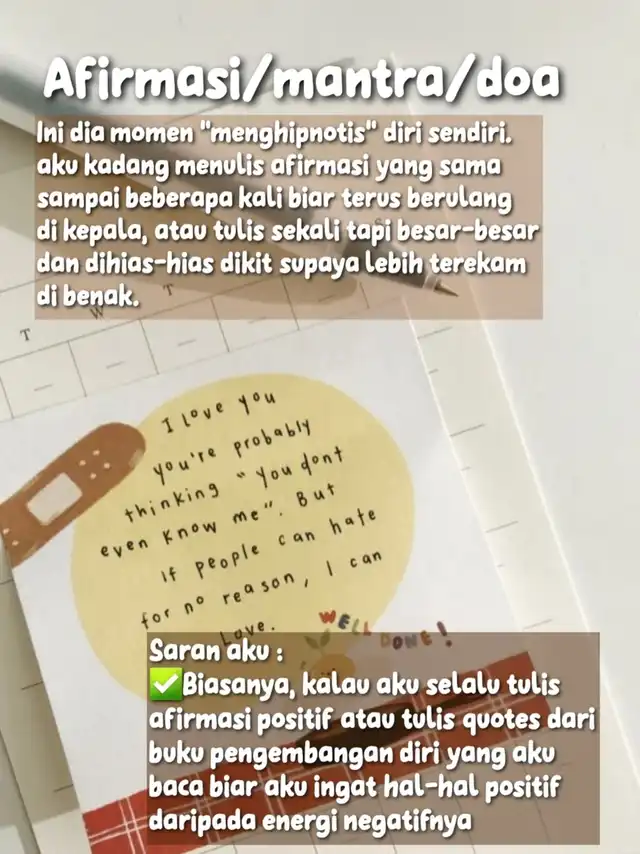 Afirmasi/mantra/doa
Ini dia momen "menghipnotis" diri sendiri.
aku kadang menulis afirmasi yang sama
sampai beberapa kali biar terus berulang
di kepala, atau tulis sekali tapi besar-besar
dan dihias-hias dikit supaya lebih terekam
di benak.
T W T
I love you
you're probably
thinking "you dont
even know me". But
if people can hate
for no reason, I can
Love.
WELL DONE!
Saran aku :
✅Biasanya, kalau aku selalu tulis
afirmasi positif atau tulis quotes dari
buku pengembangan diri yang aku
baca biar aku ingat hal-hal positif
daripada energi negatifnya